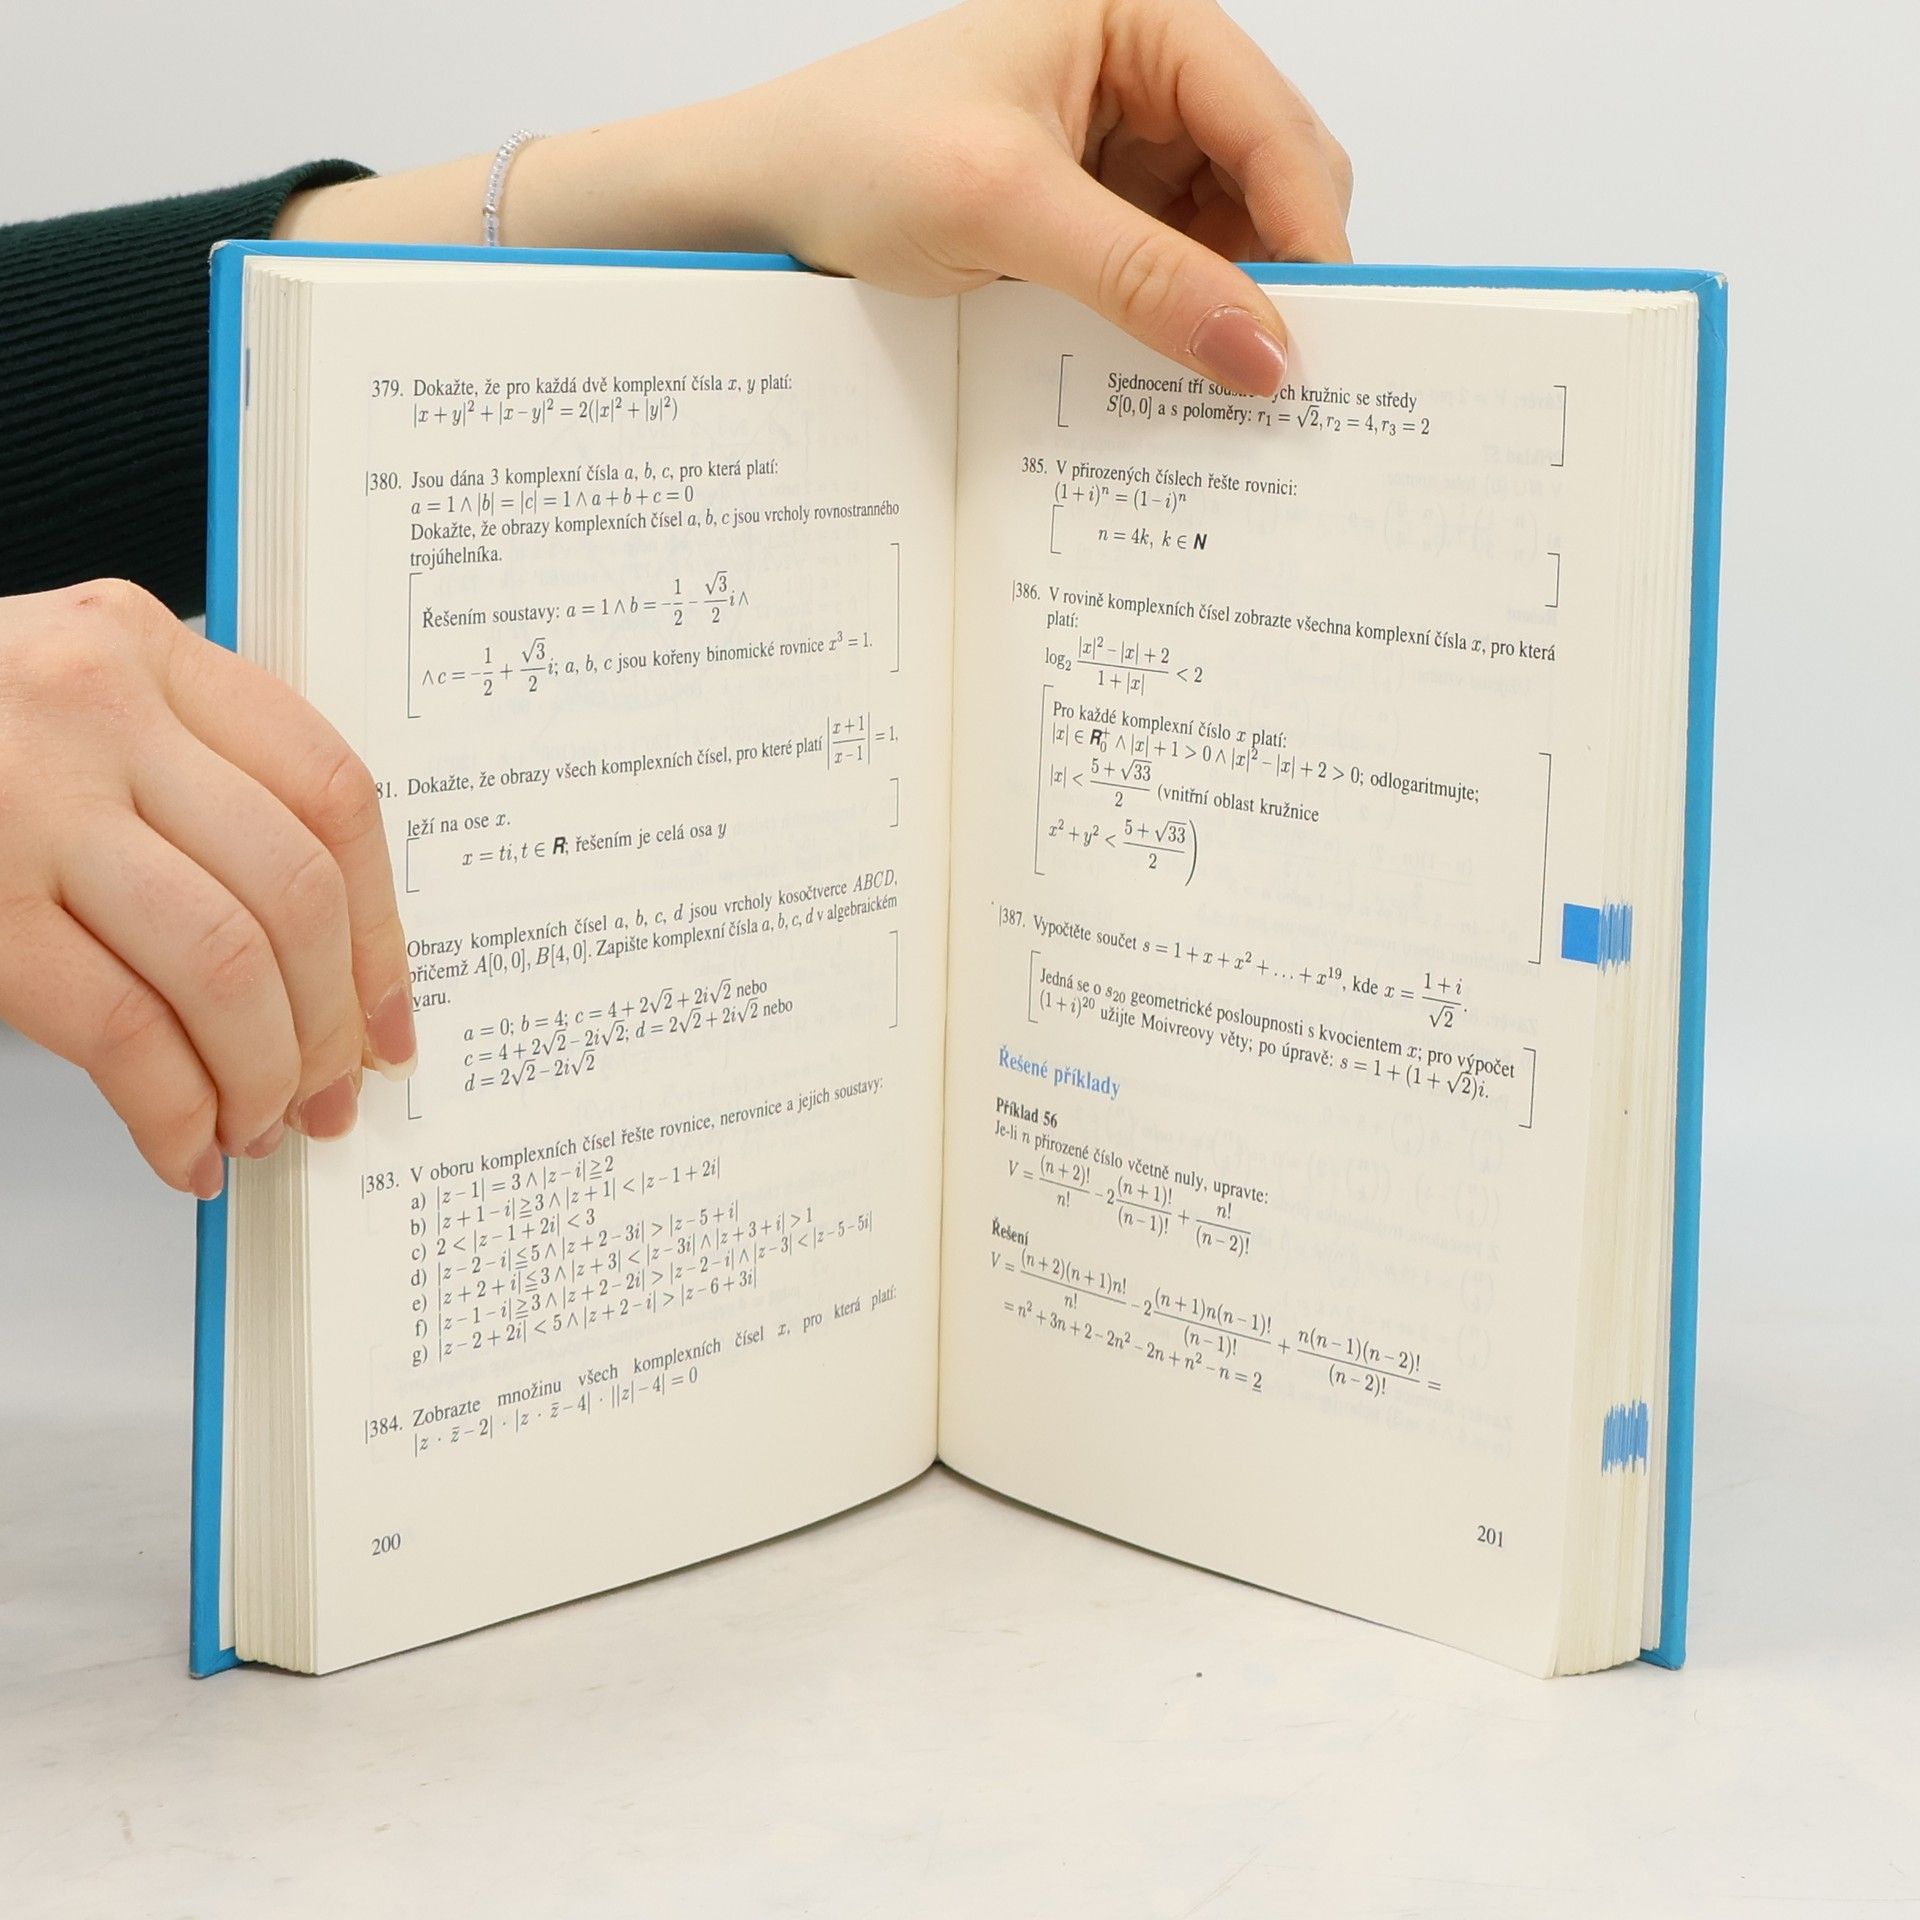 379. Dokažte, že pro každá dvě komplexní čísla x, y platí:
|x + y|² + |x − y|² = 2(|x|² + |y|²)
|380. Jsou dána 3 komplexní čísla a, b, c, pro která platí:
a = 1 ∧ |b| = |c| = 1 ∧ a + b + c = 0
Dokažte, že obrazy komplexních čísel a, b, c jsou vrcholy rovnostranného
trojúhelníka.
Řešením soustavy: a = 1 ∧ b = −1/2 − √3/2 i ∧
∧ c = −1/2 + √3/2 i; a, b, c jsou kořeny binomické rovnice x³ = 1.
81. Dokažte, že obrazy všech komplexních čísel, pro které platí |x+1 / x−1| = 1,
leží na ose x.
x = ti, t ∈ R; řešením je celá osa y
Obrazy komplexních čísel a, b, c, d jsou vrcholy kosočtverce ABCD,
přičemž A[0, 0], B[4, 0]. Zapište komplexní čísla a, b, c, d v algebraickém
tvaru.
a = 0; b = 4; c = 4 + 2√2 + 2i√2 nebo
c = 4 + 2√2 − 2i√2; d = 2√2 + 2i√2 nebo
d = 2√2 − 2i√2
|383. V oboru komplexních čísel řešte rovnice, nerovnice a jejich soustavy:
a) |z − 1| = 3 ∧ |z − i| ≧ 2
b) |z + 1 − i| ≧ 3 ∧ |z + 1| < |z − 1 + 2i|
c) 2 < |z − 1 + 2i| < 3
d) |z − 2 − i| ≦ 5 ∧ |z + 2 − 3i| > |z − 5 + i|
e) |z + 2 + i| ≦ 3 ∧ |z + 3| < |z − 3i| ∧ |z + 3 + i| > 1
f) |z − 1 − i| ≧ 3 ∧ |z + 2 − 2i| > |z − 2 − i| ∧ |z − 3| < |z − 5 − 5i|
g) |z − 2 + 2i| < 5 ∧ |z + 2 − i| > |z − 6 + 3i|
|384. Zobrazte množinu všech komplexních čísel x, pro která platí:
|z · z̄ − 2| · |z · z̄ − 4| · ||z| − 4| = 0
200
Sjednocení tří kružnic se středy
S[0, 0] a s poloměry: r₁ = √2, r₂ = 4, r₃ = 2
385. V přirozených číslech řešte rovnici:
(1 + i)ⁿ = (1 − i)ⁿ
n = 4k, k ∈ N
|386. V rovině komplexních čísel zobrazte všechna komplexní čísla x, pro která
platí:
log₂ (|x|² − |x| + 2)/(1 + |x|) < 2
Pro každé komplexní číslo x platí:
|x| ∈ R₀⁺ ∧ |x| + 1 > 0 ∧ |x|² − |x| + 2 > 0; odlogaritmujte;
|x| < (5 + √33)/2 (vnitřní oblast kružnice
x² + y² < (5 + √33)/2)
|387. Vypočtěte součet s = 1 + x + x² + … + x¹⁹, kde x = (1 + i)/√2.
Jedná se o s₂₀ geometrické posloupnosti s kvocientem x; pro výpočet
(1 + i)²⁰ užijte Moivreovy věty; po úpravě: s = 1 + (1 + √2)i.
Řešené příklady
Příklad 56
Je-li n přirozené číslo včetně nuly, upravte:
V = (n + 2)!/n! − 2 (n + 1)!/(n − 1)! + n!/(n − 2)!
Řešení
V = (n + 2)(n + 1)n!/n! − 2 (n + 1)n(n − 1)!/(n − 1)! + n(n − 1)(n − 2)!/(n − 2)! =
= n² + 3n + 2 − 2n² − 2n + n² − n = 2
201